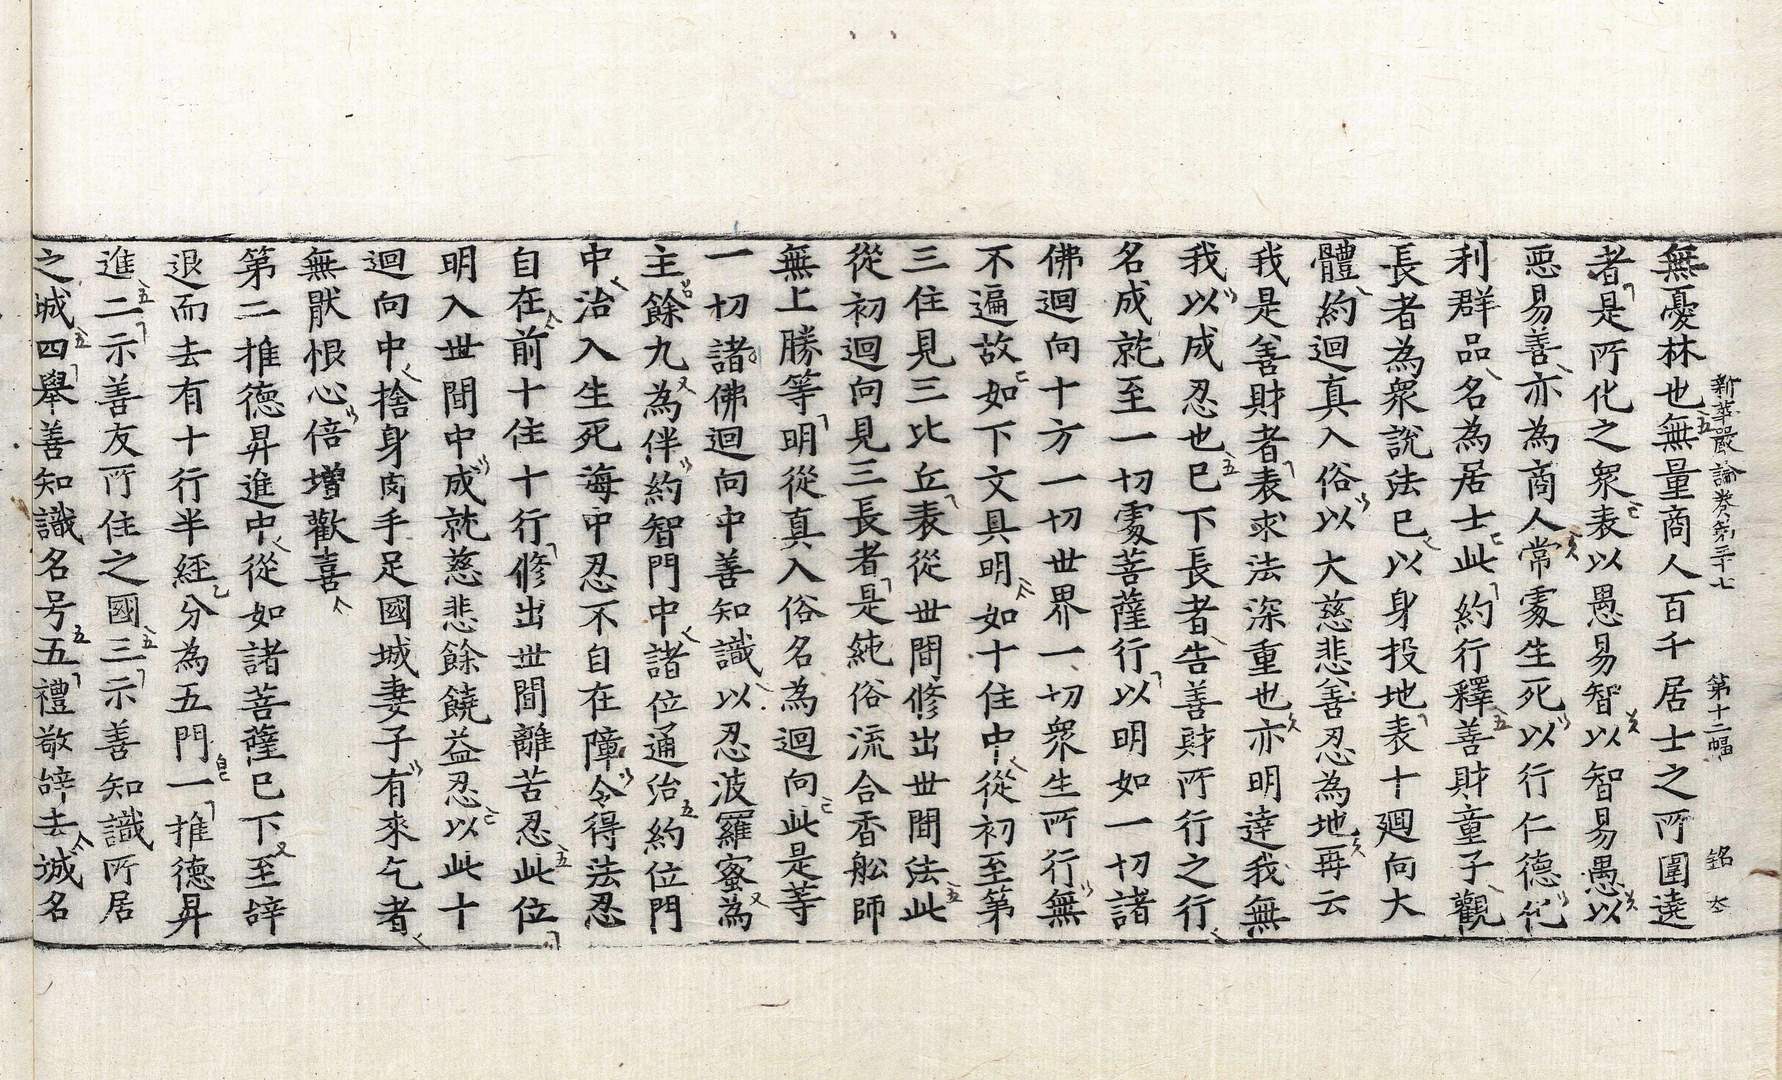 無憂林也無量商人百千居士之所圍遶
新華嚴論卷第三十七 第十二幅 銘 夲
者是所化之衆表以愚易智以智易愚以
惡易善亦為商人常處生死以行仁德化
利群品名為居士此約行釋善財童子觀
長者為衆說法已以身投地表十廻向大
體約迴真入俗以大慈悲善忍為地再云
我是善財者表求法深重也亦明達我無
我以成忍也已下長者告善財所行之行
名成就至一切處菩薩行以明如一切諸
佛迴向十方一切世界一切衆生所行無
不遍故如下文具明如十住中從初至第
三住見三比丘表從世間修出世間法此
從初迴向見三長者是純俗流合香舩師
無上勝等明從真入俗名為迴向此是等
一切諸佛迴向中善知識以忍波羅蜜為
主餘九為伴約智門中諸位通治約位門
中治入生死海中忍不自在障令得法忍
自在前十住十行修出世間離苦忍此位
明入世間中成就慈悲餘饒益忍以此十
迴向中捨身肉手足國城妻子有來乞者
無猒恨心倍增歡喜
第二推德昇進中從如諸菩薩已下至辝
退而去有十行半經分為五門一推德昇
進二示善友所住之國三示善知識所居
之城四舉善知識名号五禮敬辝去城名